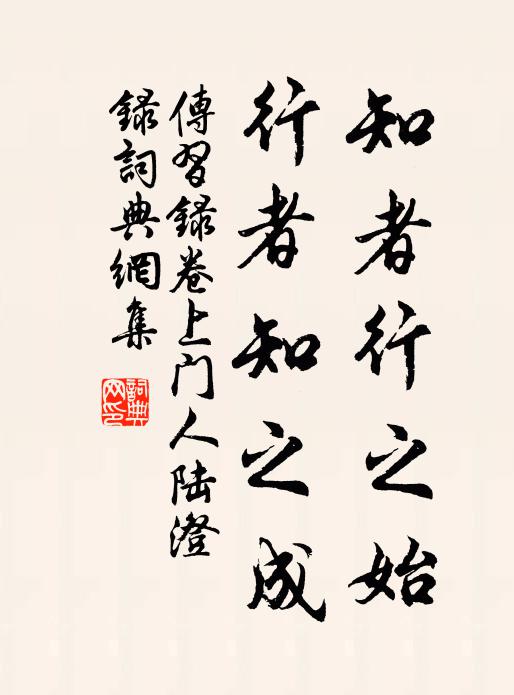 知者行之始
行者知之成
傳習録卷上门人陆澄
録詞典網集
詞典
网印